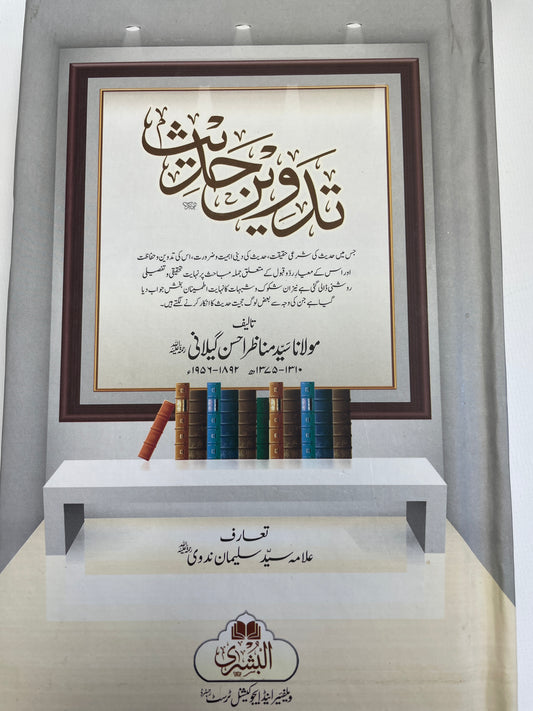 تدوین حدیث
جس میں حدیث کی شرعی حقیقت، حدیث کی دینی اہمیت و ضرورت، اس کی تدوین و حفاظت
اور اس کے معیارِ رد و قبول کے متعلق جملہ مباحث پر نہایت تحقیقی و تفصیلی
روشنی ڈالی گئی ہے نیز ان شکوک و شبہات کا نہایت اطمینان بخش جواب دیا
گیا ہے جن کی وجہ سے بعض لوگ حجیت حدیث کا انکار کرنے لگتے ہیں۔
تالیف
مولانا سیّد مناظر احسن گیلانی رحمۃ اللہ علیہ
۱۳۱۰-۱۳۷۵ھ ۱۸۹۲-۱۹۵۶ء
تعارف
علامہ سیّد سلیمان ندوی رحمۃ اللہ علیہ
البشریٰ
ویلفیئر اینڈ ایجوکیشنل ٹرسٹ